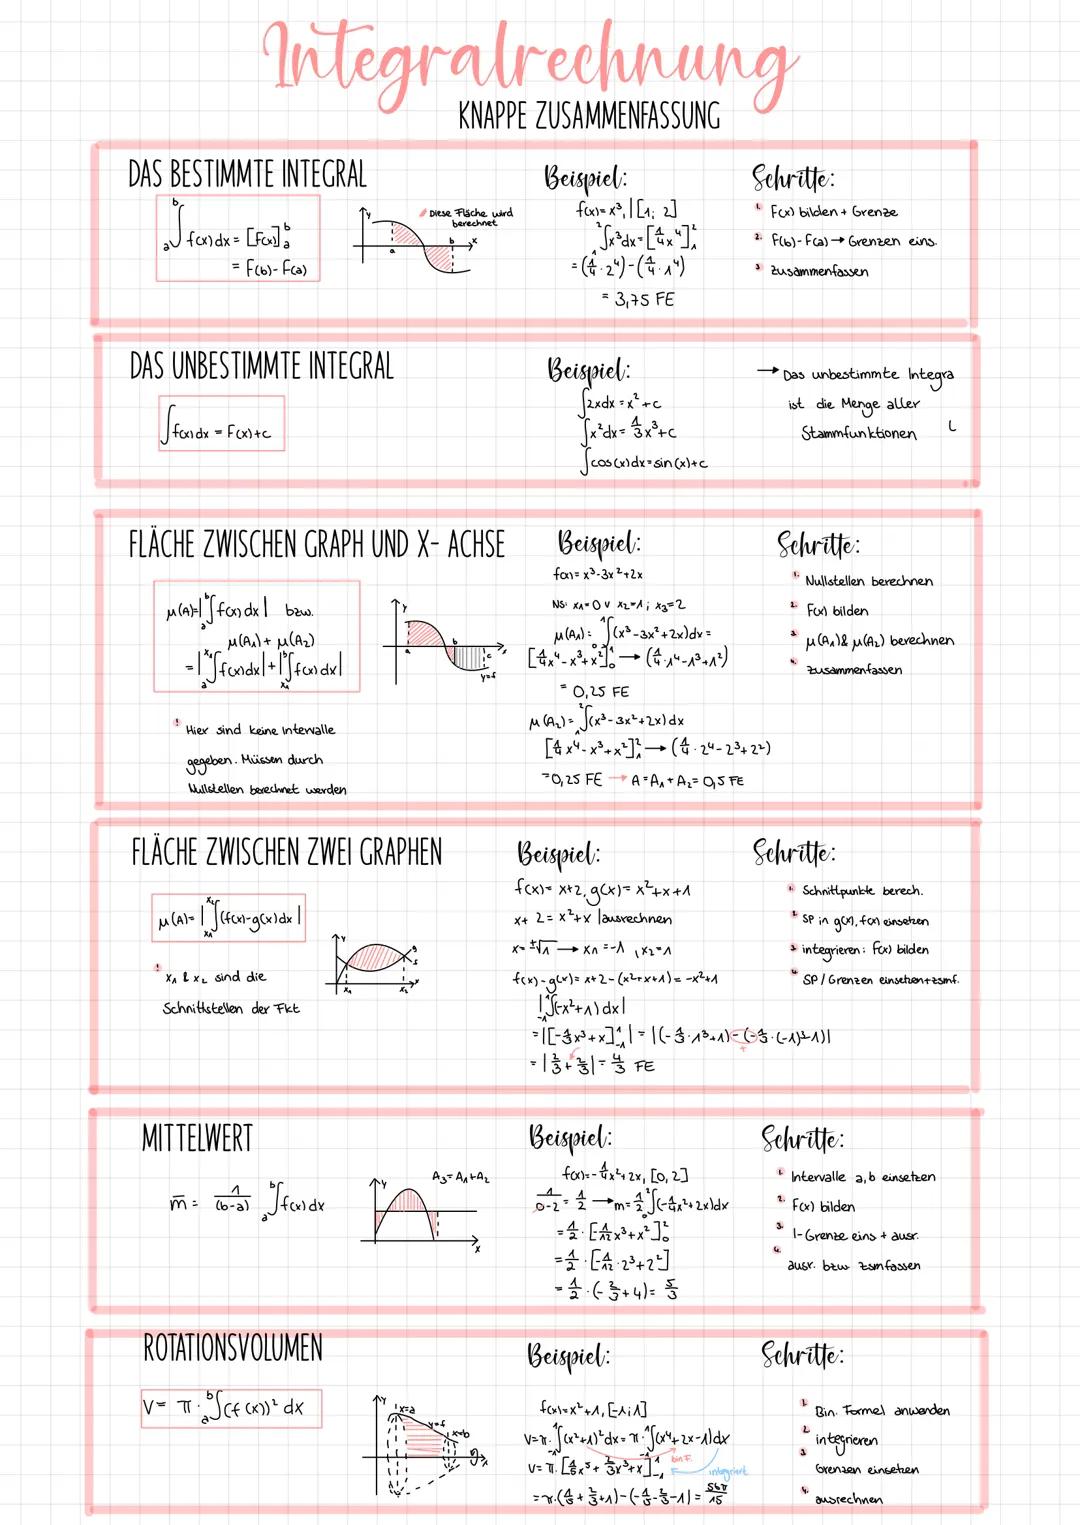 Integralrechnung
KNAPPE ZUSAMMENFASSUNG
DAS BESTIMMTE INTEGRAL
a∫b f(x)dx = [F(x)]ba
= F(b)-F(a)
y
Diese Fläche wird
berechnet
a b x
Beispiel:
f(x)= x³, I [1; 2]
1∫2 x³dx = [1/4 x⁴]21
= (1/4 · 2⁴)-(1/4 · 1⁴)
= 3,75 FE
Schritte:
1. F(x) bilden + Grenze
2. F(b)-F(a) → Grenzen eins.
3 zusammenfassen
DAS UNBESTIMMTE INTEGRAL
∫f(x)dx = F(x)+c
Beispiel:
∫2xdx = x²+c
∫x²dx = 1/3 x³+c
∫cos(x)dx = sin(x)+c
→ Das unbestimmte Integra
ist die Menge aller
Stammfunktionen L
FLÄCHE ZWISCHEN GRAPH UND X- ACHSE
μ(A)=|a∫b f(x)dx| bzw.
μ(A1)+ μ(A2)
= |a∫x1 f(x)dx| + |x1∫b f(x)dx|
! Hier sind keine Intervalle
gegeben. Müssen durch
Nullstellen berechnet werden
y
a b c
y=f
Beispiel:
f(x)= x³-3x²+2x
NS: x1=0 v x2=1; x3=2
μ(A1) = 0∫1 (x³-3x²+2x)dx =
[1/4x⁴-x³+x²]10 → (1/4·1⁴-1³+1²)
= 0,25 FE
μ(A2) = 1∫2 (x³-3x²+2x)dx
[1/4x⁴-x³+x²]21 → (1/4·2⁴-2³+2²)
=0,25 FE → A=A1+A2= 0,5 FE
Schritte:
1. Nullstellen berechnen
2. F(x) bilden
3 μ(A1)& μ(A2) berechnen
4. zusammenfassen
FLÄCHE ZWISCHEN ZWEI GRAPHEN
μ(A)= |x1∫x2 (f(x)-g(x)dx|
! x1 & x2 sind die
Schnittstellen der Fkt
y g f
x1 x2 x
Beispiel:
f(x)= x+2, g(x)= x²+x+1
x+ 2 = x²+x |ausrechnen
x= ±√1 → x1 =-1 , x2=1
f(x)-g(x)= x+2-(x²+x+1)= -x²+1
|-1∫1(-x²+1)dx|
=|[-1/3x³+x]1-1| = |(-1/3·1³+1)-(-1/3·(-1)³-1)|
+
= |2/3+2/3| = 4/3 FE
Schritte:
1. Schnittpunkte berech.
2 SP in g(x), f(x) einsetzen
3 integrieren: F(x) bilden
4 SP/Grenzen einsetzen+zsmf.
MITTELWERT
m̄ = 1/(b-a) a∫b f(x)dx
y
A3=A1+A2
x
Beispiel:
f(x)=-1/4x²+2x, [0,2]
1/0-2 = 1/2 → m=1/2 0∫2(-1/4x²+2x)dx
= 1/2 · [-1/12x³+x²]20
= 1/2 · [-1/12 · 2³+2²]
= 1/2 · (-2/3+4)= 5/3
Schritte:
1. Intervalle a,b einsetzen
2. F(x) bilden
3. I-Grenze eins + ausr.
4.
ausr. bzw zsmfassen
ROTATIONSVOLUMEN
V= π · a∫b(f(x))² dx
y
x=a
y=f
x=b
x
Beispiel:
f(x)=x²+1, [-1;1]
V=π·-1∫1(x²+1)²dx = π·-1∫1(x⁴+2x-1)dx
bin F.
V= π·[1/5x⁵+2/3x³+x]1-1
integriert
=π·(1/5+2/3+1)-(-1/5-2/3-1) = 56π/15
Schritte:
1. Bin. Formel anwenden
2 integrieren
3 Grenzen einsetzen
4. ausrechnen